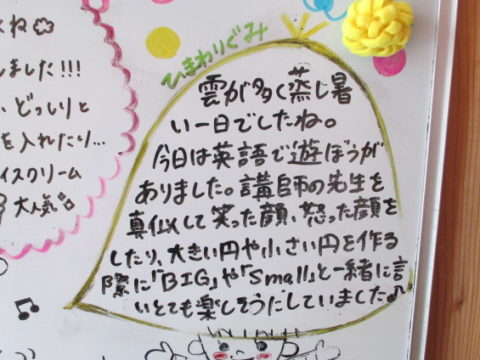 くね
しました!!!
、どっしりと
を入れたり…
イスクリーム
大人気
ひまわりぐみ
雲が多く蒸し暑
い一日でしたね。
今日は英語で遊ぼうが
ありました。講師の先生を
真似して笑った顔、怒った顔を
したり、大きい円や小さい円を作る
際に「BIG」や「Small」と一緒に言
いとても楽しそうにしていました♪